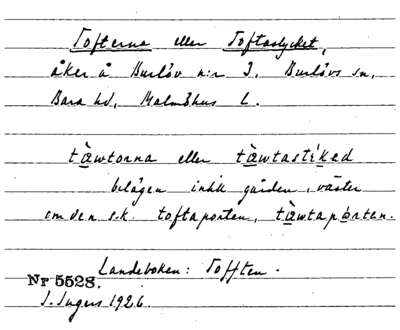 Tofterna eller Toftastycket,
åker å Burlöv n:r 3, Burlövs sn,
Bara hd, Malmöhus L.
tàwtorna eller tàwtastíked
belägen intill gården, väster
om den s.k. toftaporten, tàwtapórten.
Landeboken: Tofften.
Nr 5528.
J. Ingers 1926.